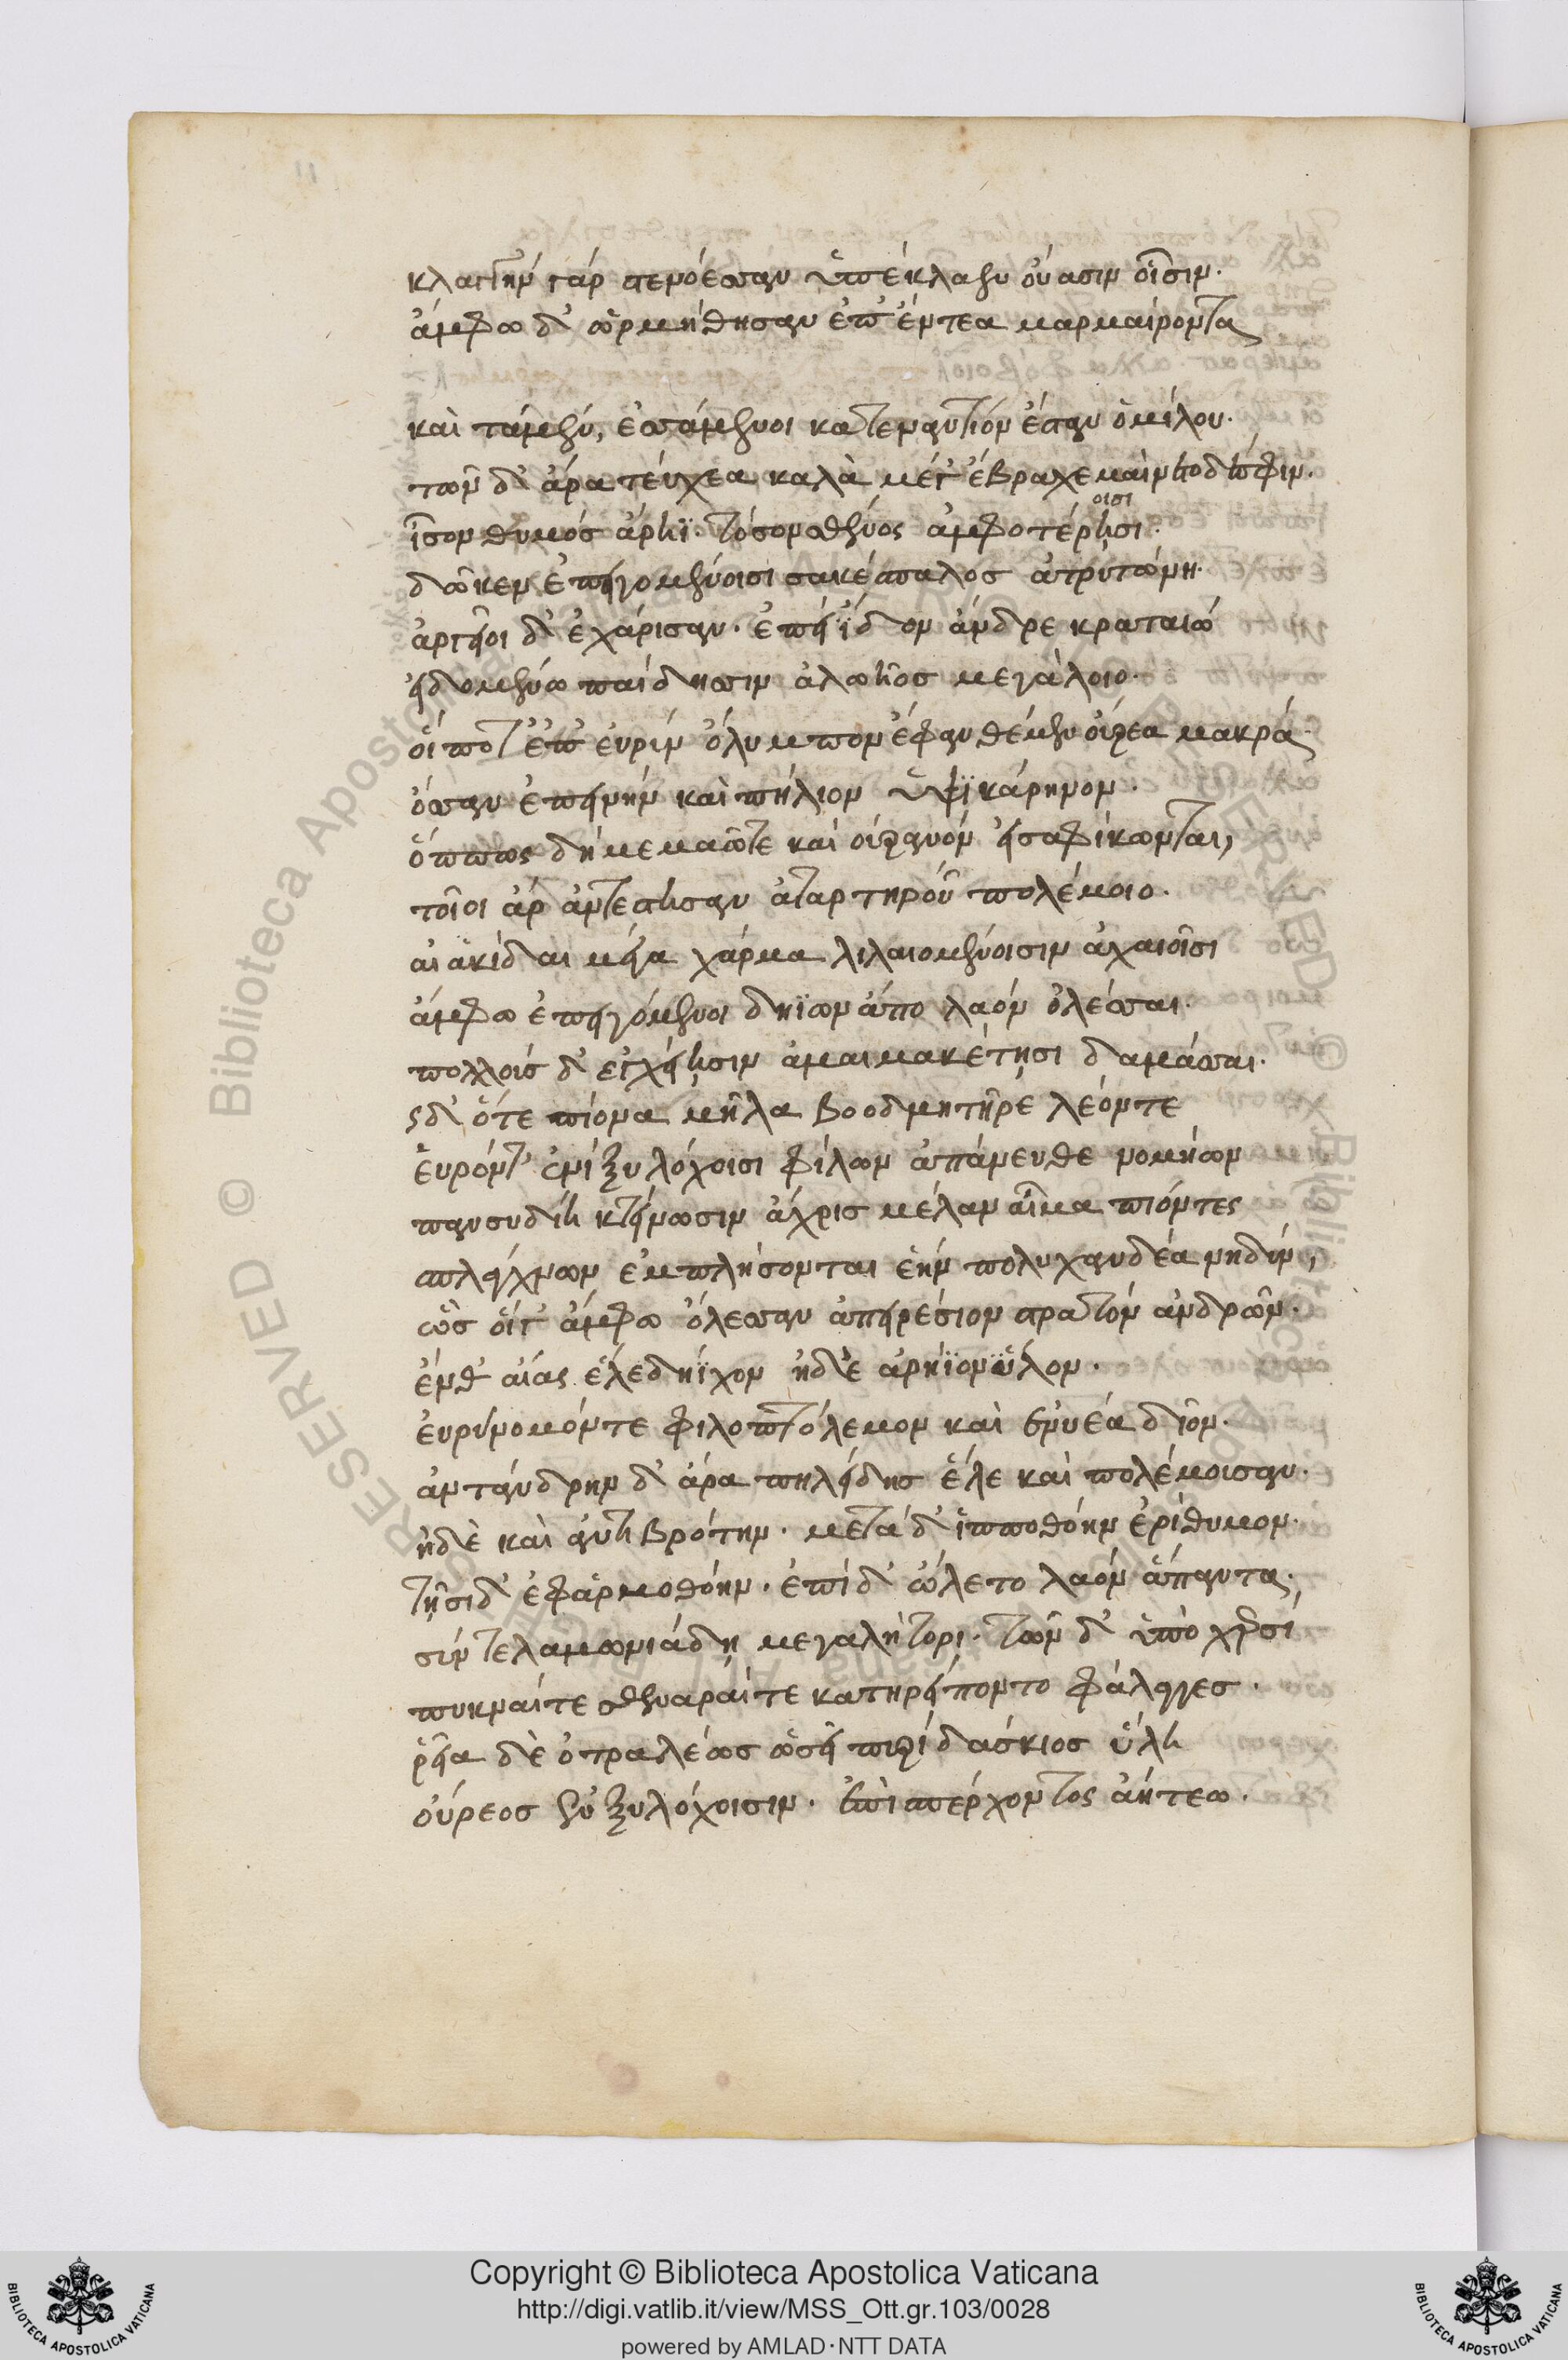 κλαγγὴν γὰρ στενόεσσαν ὑπέκλαγεν οὔασιν οἷσιν.
ἄμφω δ' ὡρμήθησαν ἐπ' ἔντεα μαρμαίροντα
καὶ τάμεν, ἑσσάμενοι κατεναντίον ἔσταν ὁμίλου.
τῶν δ' ἄρα τεύχεα καλὰ μέγ' ἔβραχε μαίνετο δ'
ἶσον θυμὸς ἄρηϊ. τόσον σθένος ἀμφοτέρησι.
οισι
δῶκεν ἐπειγομένοισι σακέσπαλος ἀτρυτώνη.
ἀργεῖοι δ' ἐχάρησαν. ἐπεὶ ἴδον ἄνδρε κραταιώ
εἰδομένω παίδεσσιν ἀλωῆος μεγάλοιο.
οἵ ποτ' ἐπ' εὐρὺν ὄλυμπον ἔφαν θέμεν οὔρεα μακρά.
ὄσσαν ἐπεινὴν καὶ πήλιον ὑψικάρηνον.
ὅππως δὴ μεμαῶτε καὶ οὐρανὸν εἰσαφίκωνται,
τοῖοι ἄρ' ἀντέστησαν ἀταρτηροῦ πολέμοιο.
αἰακίδαι μέγα χάρμα λιλαιομένοισιν ἀχαιοῖσι
ἄμφω ἐπειγόμενοι δηΐων ἄπο λαὸν ὀλέσσαι.
πολλοὺς δ' ἐγχείησιν ἀμαιμακέτῃσι δάμασσαι.
ὡς δ' ὅτε πίονα μῆλα βοοδμητῆρε λέοντε
εὑρόντ' ἐνὶ ξυλόχοισι φίλων ἀπάνευθε νομήων
πανσυδίῃ κτείνωσιν ἄχρις μέλαν αἷμα πιόντες
σπλάγχνων ἐμπλήσονται ἑὴν πολυχανδέα νηδύν,
ὣς οἵγ' ἄμφω ὄλεσσαν ἀπειρέσιον στρατὸν ἀνδρῶν.
ἔνθ' αἴας ἕλε δηΐοχον ἠδὲ ἀρήϊον ὕλλον.
εὐρύνομόν τε φιλοπτόλεμον καὶ ἐνυέα δῖον.
ἀντάνδρην δ' ἄρα πηλείδης ἕλε καὶ πολέμοισαν.
ἠδὲ καὶ ἀντιβρότην. μετὰ δ' ἱπποθόην ἐρίθυμον.
τῇσι δ' ἐφ' ἁρμοθόην. ἐπὶ δ' ὤλετο λαὸν ἅπαντα.
σὺν τελαμωνιάδῃ μεγαλήτορι. τῶν δ' ὑπὸ χερσὶ
πυκναί τε σθεναραί τε κατηρείποντο φάλαγγες.
ῥεῖα δὲ ὀτραλέως ὡσεὶ πυρὶ δάσκιος ὕλη
οὔρεος ἐν ξυλόχοισιν. ἐπισπέρχοντος ἀήτεω.
Copyright © Biblioteca Apostolica Vaticana
http://digi.vatlib.it/view/MSS_Ott.gr.103/0028
powered by AMLAD·NTT DATA